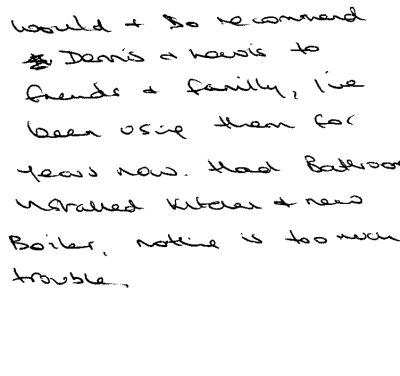 would + do recommend
Dennis + Lewis to
friends + family, I've
been using them for
years now. Had Bathroom
installed Kitchen + new
Boiler, nothing is too much
trouble.